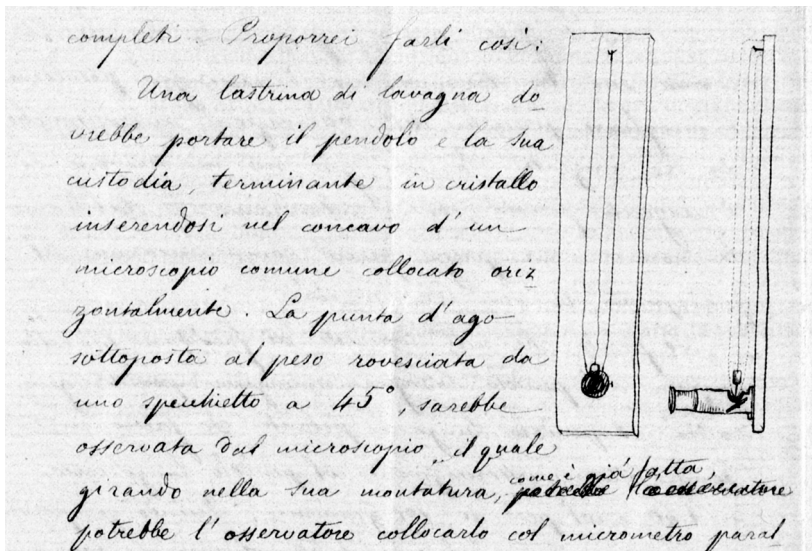 completi. Proporrei farli così:
Una lastrina di lavagna do-
vrebbe portare il pendolo e la sua
custodia, terminante in cristallo
inserendosi nel concavo d'un
microscopio comune collocato oriz
zontalmente. La punta d'ago
sottoposta al peso rovesciata da
uno specchietto a 45°, sarebbe
osservata dal microscopio il quale
girando nella sua montatura, come è già fatta,
potrebbe l'osservatore collocarlo col micrometro paral